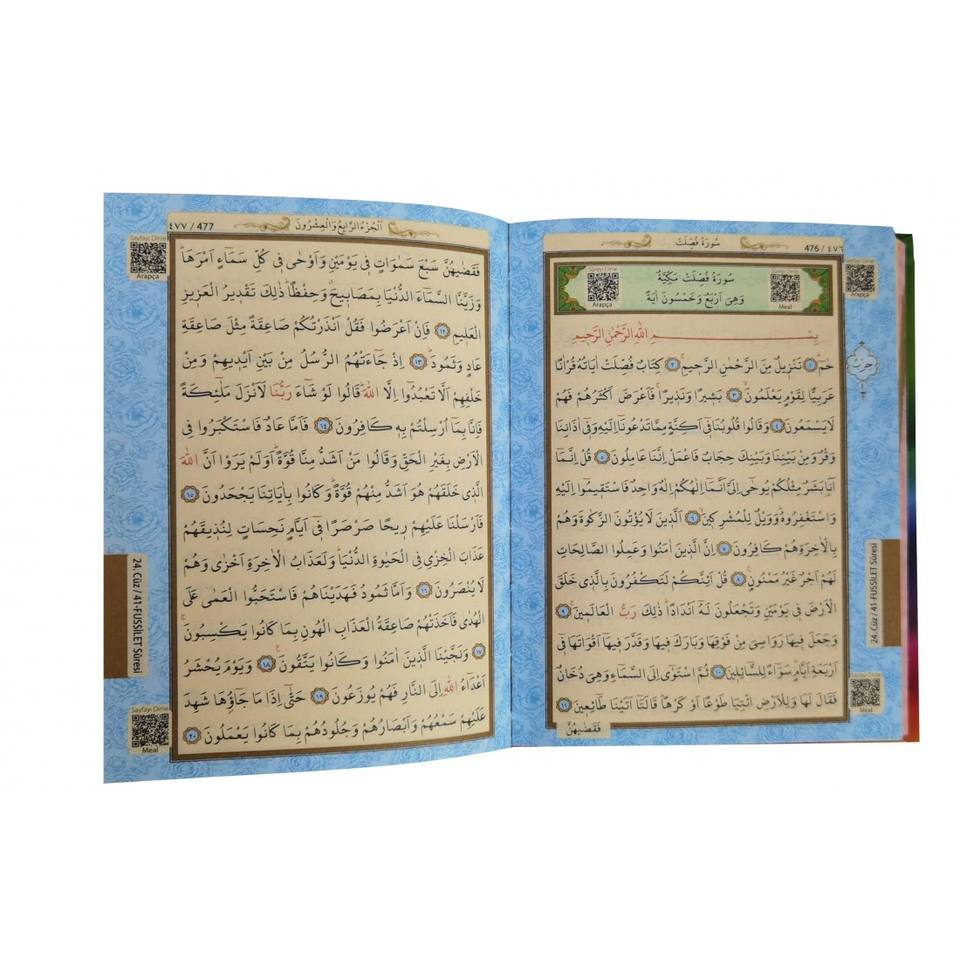 476 / ٤٧٦
سُورَةُ فُصِّلَتْ
Arapça
Sayfayı Dinle
Arapça
سُورَةُ فُصِّلَتْ مَكِّيَّةٌ
وَهِيَ اَرْبَعٌ وَخَمْسُونَ اٰيَةً
Meal
بِسْمِ اللّٰهِ الرَّحْمٰنِ الرَّحٖيمِ
حٰمٓ ﴿١﴾ تَنْزٖيلٌ مِنَ الرَّحْمٰنِ الرَّحٖيمِ ﴿٢﴾ كِتَابٌ فُصِّلَتْ اٰيَاتُهُ قُرْاٰنًا
عَرَبِيًّا لِقَوْمٍ يَعْلَمُونَ ﴿٣﴾ بَشٖيرًا وَنَذٖيرًا فَاَعْرَضَ اَكْثَرُهُمْ فَهُمْ
لَا يَسْمَعُونَ ﴿٤﴾ وَقَالُوا قُلُوبُنَا فٖٓى اَكِنَّةٍ مِمَّا تَدْعُونَٓا اِلَيْهِ وَفٖٓى اٰذَانِنَا
وَقْرٌ وَمِنْ بَيْنِنَا وَبَيْنِكَ حِجَابٌ فَاعْمَلْ اِنَّنَا عَامِلُونَ ﴿٥﴾ قُلْ اِنَّمَٓا
اَنَا بَشَرٌ مِثْلُكُمْ يُوحٰٓى اِلَىَّ اَنَّمَٓا اِلٰهُكُمْ اِلٰهٌ وَاحِدٌ فَاسْتَقٖيمُٓوا اِلَيْهِ
وَاسْتَغْفِرُوهُ وَوَيْلٌ لِلْمُشْرِكٖينَ ﴿٦﴾ اَلَّذٖينَ لَا يُؤْتُونَ الزَّكٰوةَ وَهُمْ
بِالْاٰخِرَةِ هُمْ كَافِرُونَ ﴿٧﴾ اِنَّ الَّذٖينَ اٰمَنُوا وَعَمِلُوا الصَّالِحَاتِ
لَهُمْ اَجْرٌ غَيْرُ مَمْنُونٍ ﴿٨﴾ قُلْ اَئِنَّكُمْ لَتَكْفُرُونَ بِالَّذٖى خَلَقَ
الْاَرْضَ فٖى يَوْمَيْنِ وَتَجْعَلُونَ لَهُٓ اَنْدَادًا ذٰلِكَ رَبُّ الْعَالَمٖينَ ﴿٩﴾
وَجَعَلَ فٖيهَا رَوَاسِىَ مِنْ فَوْقِهَا وَبَارَكَ فٖيهَا وَقَدَّرَ فٖيهَٓا اَقْوَاتَهَا فٖٓى
اَرْبَعَةِ اَيَّامٍ سَوَٓاءً لِلسَّٓائِلٖينَ ﴿١٠﴾ ثُمَّ اسْتَوٰٓى اِلَى السَّمَٓاءِ وَهِىَ دُخَانٌ
فَقَالَ لَهَا وَلِلْاَرْضِ ائْتِيَا طَوْعًا اَوْ كَرْهًا قَالَتَٓا اَتَيْنَا طَٓائِعٖينَ ﴿١١﴾
فَقَضٰيهُنَّ
حزب
24. Cüz / 41-FUSSİLET Sûresi
Meal
٤٧٧ / 477
اَلْجُزْءُ الرَّابِعُ وَالْعِشْرُونَ
Sayfayı Dinle
Arapça
فَقَضٰيهُنَّ سَبْعَ سَمٰوَاتٍ فٖى يَوْمَيْنِ وَاَوْحٰى فٖى كُلِّ سَمَٓاءٍ اَمْرَهَا
وَزَيَّنَّا السَّمَٓاءَ الدُّنْيَا بِمَصَابٖيحَ وَحِفْظًا ذٰلِكَ تَقْدٖيرُ الْعَزٖيزِ
الْعَلٖيمِ ﴿١٢﴾ فَاِنْ اَعْرَضُوا فَقُلْ اَنْذَرْتُكُمْ صَاعِقَةً مِثْلَ صَاعِقَةِ
عَادٍ وَثَمُودَ ﴿١٣﴾ اِذْ جَٓاءَتْهُمُ الرُّسُلُ مِنْ بَيْنِ اَيْدٖيهِمْ وَمِنْ
خَلْفِهِمْ اَلَّا تَعْبُدُٓوا اِلَّا اللّٰهَ قَالُوا لَوْ شَٓاءَ رَبُّنَا لَاَنْزَلَ مَلٰٓئِكَةً
فَاِنَّا بِمَٓا اُرْسِلْتُمْ بِهٖ كَافِرُونَ ﴿١٤﴾ فَاَمَّا عَادٌ فَاسْتَكْبَرُوا فِى
الْاَرْضِ بِغَيْرِ الْحَقِّ وَقَالُوا مَنْ اَشَدُّ مِنَّا قُوَّةً اَوَلَمْ يَرَوْا اَنَّ اللّٰهَ
الَّذٖى خَلَقَهُمْ هُوَ اَشَدُّ مِنْهُمْ قُوَّةً وَكَانُوا بِاٰيَاتِنَا يَجْحَدُونَ ﴿١٥﴾
فَاَرْسَلْنَا عَلَيْهِمْ رٖيحًا صَرْصَرًا فٖٓى اَيَّامٍ نَحِسَاتٍ لِنُذٖيقَهُمْ
عَذَابَ الْخِزْىِ فِى الْحَيٰوةِ الدُّنْيَا وَلَعَذَابُ الْاٰخِرَةِ اَخْزٰى وَهُمْ
لَا يُنْصَرُونَ ﴿١٦﴾ وَاَمَّا ثَمُودُ فَهَدَيْنَاهُمْ فَاسْتَحَبُّوا الْعَمٰى عَلَى
الْهُدٰى فَاَخَذَتْهُمْ صَاعِقَةُ الْعَذَابِ الْهُونِ بِمَا كَانُوا يَكْسِبُونَ
﴿١٧﴾ وَنَجَّيْنَا الَّذٖينَ اٰمَنُوا وَكَانُوا يَتَّقُونَ ﴿١٨﴾ وَيَوْمَ يُحْشَرُ
اَعْدَٓاءُ اللّٰهِ اِلَى النَّارِ فَهُمْ يُوزَعُونَ ﴿١٩﴾ حَتّٰٓى اِذَا مَا جَٓاؤُهَا شَهِدَ
عَلَيْهِمْ سَمْعُهُمْ وَاَبْصَارُهُمْ وَجُلُودُهُمْ بِمَا كَانُوا يَعْمَلُونَ ﴿٢٠﴾
24. Cüz / 41-FUSSİLET Sûresi
Sayfayı Dinle
Meal